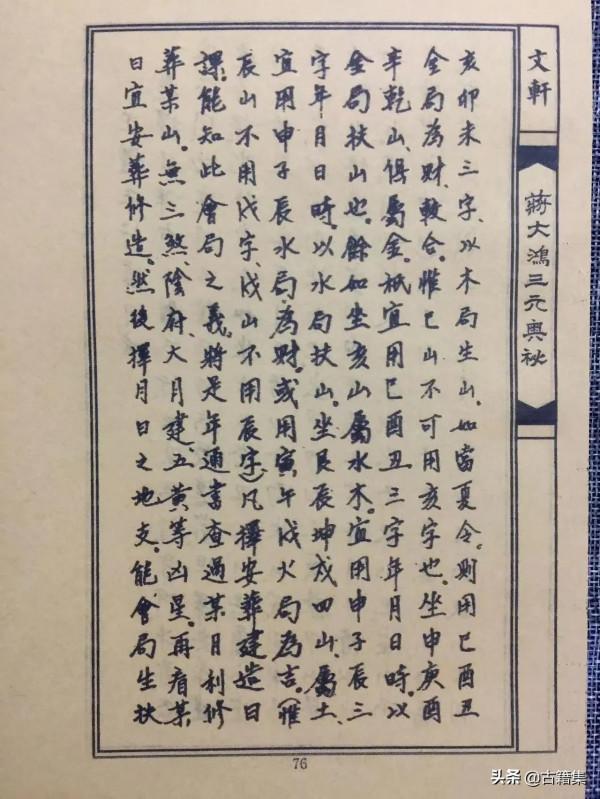 文軒
蔣大鴻三元奧秘
亥卯未三字、以木局生山、如當夏令。則用巳酉丑
金局為財、較合。惟巳山不可用亥字也。坐申庚酉
辛乾山、俱屬金。祇宜用巳酉丑三字年月日時。以
金局扶山也。餘如坐亥山屬水木。宜用申子辰三
字年月日時。以水局扶山。坐艮辰坤戌四山、屬土、
宜用申子辰水局、為財。或用寅午戌火局為吉。(惟
辰山不用戌字、戌山不用辰字)凡擇安葬建造日
課。能知此會局之義。將是年通書查過某月利修
葬某山。無三煞、陰府、大月建、五黃等凶星。再看某
日宜安葬修造。然後擇月日之地支。能會局生扶
76
头条 @古籍集